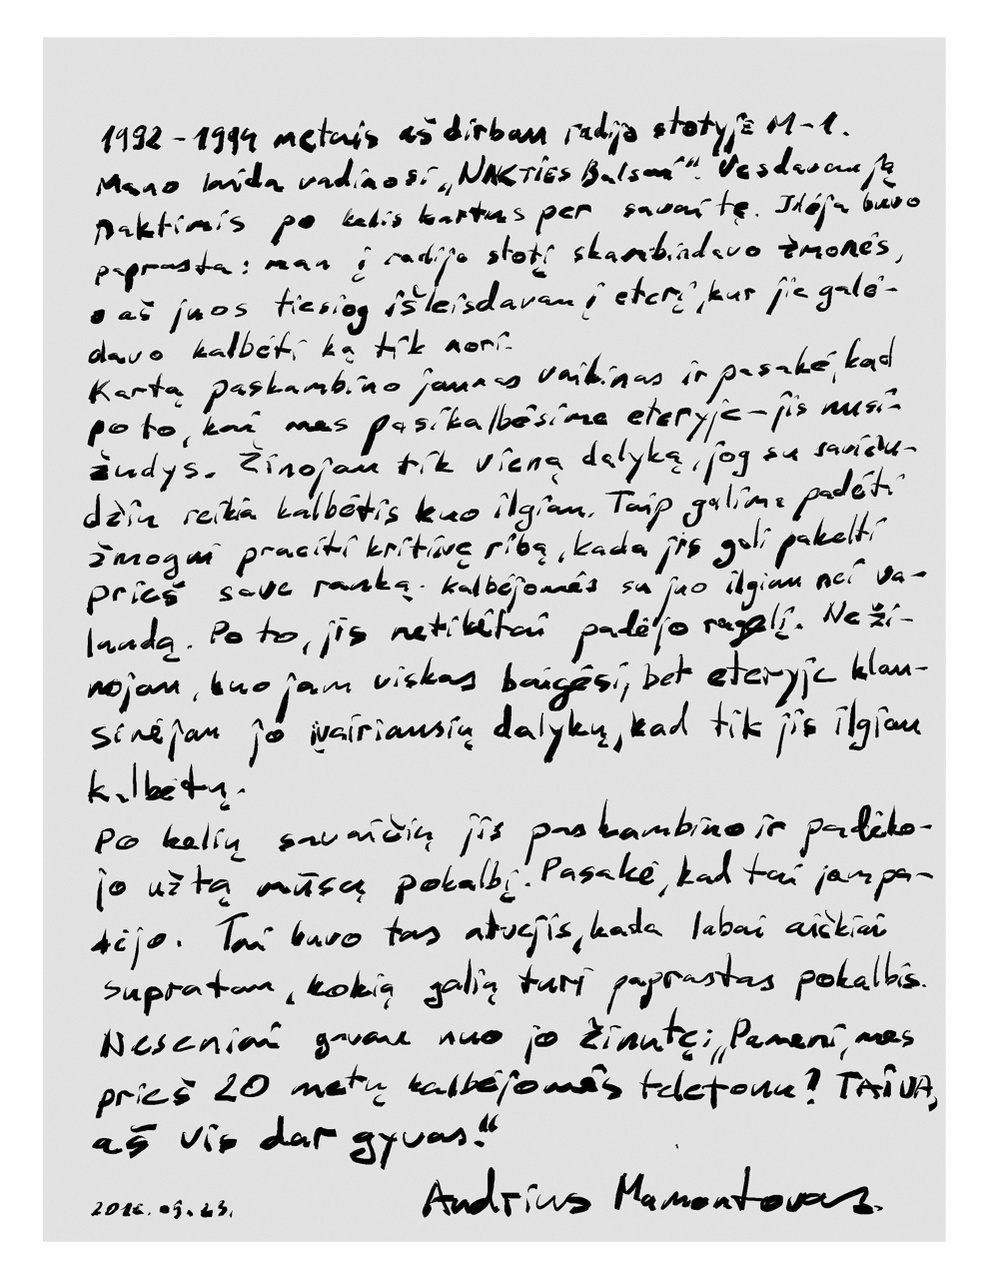 1992-1994 metais aš dirbau radijo stotyje M-1.
Mano laida vadinosi „NAKTIES Balsai“. Vesdavau ją
naktimis po kelis kartus per savaitę. Idėja buvo
paprasta: man į radijo stotį skambindavo žmonės,
o aš juos tiesiog išleisdavau į eterį, kur jie galė-
davo kalbėti ką tik nori.
Kartą paskambino jaunas vaikinas ir pasakė, kad
po to, kai mes pasikalbėsime eteryje – jis nusi-
žudys. Žinojau tik vieną dalyką, jog su savižu-
džiu reikia kalbėtis kuo ilgiau. Taip galima padėti
žmogui praeiti kritinę ribą, kada jis gali pakelti
prieš save ranką. Kalbėjomės su juo ilgiau nei va-
landą. Po to, jis netikėtai padėjo ragelį. Neži-
nojau, kuo jam viskas baigėsi, bet eteryje klau-
sinėjau jo įvairiausių dalykų, kad tik jis ilgiau
kalbėtų.
Po kelių savaičių jis paskambino ir padėko-
jo už tą mūsų pokalbį. Pasakė, kad tai jam pa-
dėjo. Tai buvo tas atvejis, kada labai aiškiai
supratau, kokią galią turi paprastas pokalbis.
Neseniai gavau nuo jo žinutę: „Pameni, mes
prieš 20 metų kalbėjomės telefonu? TAI VA,
aš vis dar gyvas.“
Andrius Mamontovas.
2016.09.23.